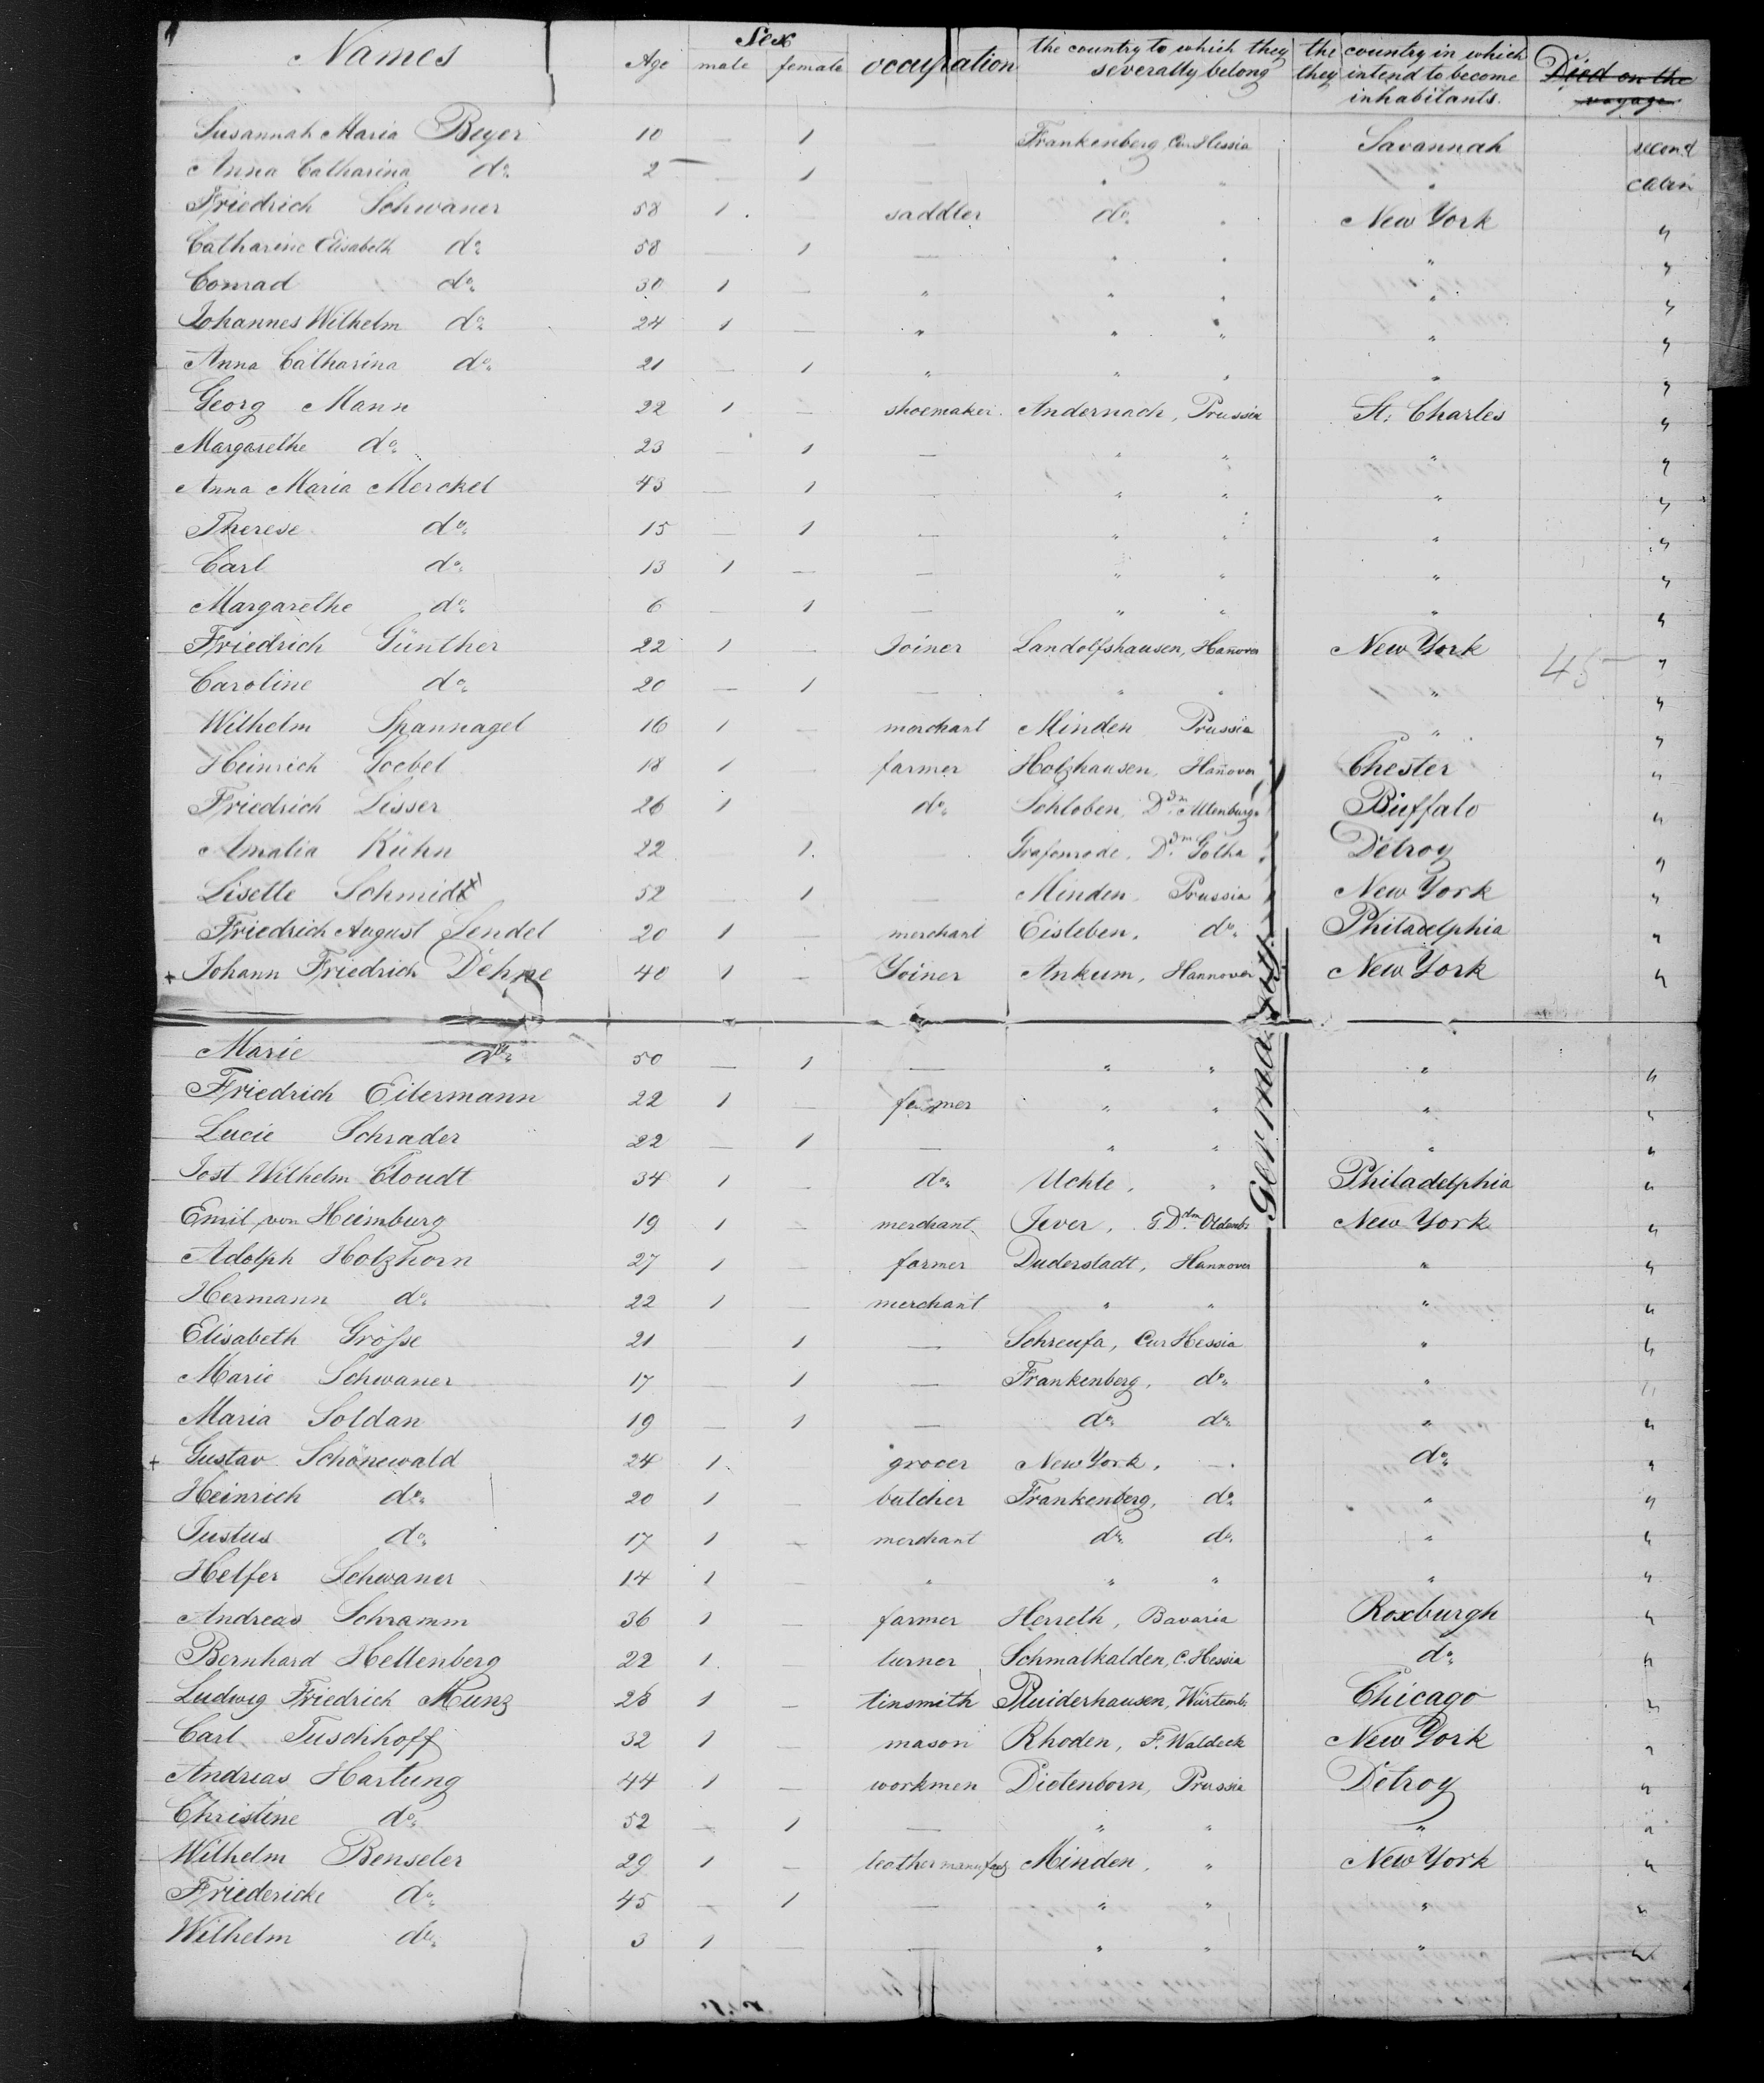 Names Age Sex male female occupation the country to which they severally belong the country in which they intend to become inhabitants. Died on the voyage
Susannah Maria Beyer 10 — 1 — Frankenberg, Cur Hessia Savannah second
Anna Catharina do. 2 — 1 — " " " cabin
Friedrich Schwaner 58 1 — saddler do. " New York "
Catharine Elisabeth do. 58 — 1 — " " " "
Conrad do. 30 1 — " " " " "
Johannes Wilhelm do. 24 1 — " " " " "
Anna Catharina do. 21 — 1 " " " " "
Georg Mann 22 1 — shoemaker. Andernach, Prussia St. Charles "
Margarethe do. 23 — 1 — " " " "
Anna Maria Merckel 43 — 1 — " " " "
Therese do. 15 — 1 — " " " "
Carl do. 13 1 — — " " " "
Margarethe do. 6 — 1 — " " " "
Friedrich Günther 22 1 — Joiner Landolfshausen, Hannover New York 45 "
Caroline do. 20 — 1 — " " " "
Wilhelm Spannagel 16 1 — merchant Minden Prussia " "
Heinrich Goebel 18 1 — farmer Holzhausen, Hannover Chester "
Friedrich Lisser 26 1 — do. Schloben, Ddm. Altenburg Buffalo "
Amalia Kühn 22 1. — Grafenrode, Ddm. Gotha Detroy "
Lisette Schmidt 52 — 1 — Minden, Prussia New York "
Friedrich August Sendel 20 1 — merchant Eisleben, do. Philadelphia "
+ Johann Friedrich Dehne 40 1 — Joiner Ankum, Hannover New York "
Germany
Marie do. 50 — 1 — " " " "
Friedrich Eilermann 22 1 — farmer " " " "
Lucie Schrader 22 — 1 — " " " "
Jost Wilhelm Cloudt 34 1 — do. Uchte, " Philadelphia "
Emil von Heimburg 19 1 — merchant Jever, G. Ddm. Oldenb. New York "
Adolph Holzhorn 27 1 — farmer Duderstadt, Hannover " "
Hermann do. 22 1 — merchant " " " "
Elisabeth Größe 21 — 1 — Schreufa, Cur Hessia " "
Marie Schwaner 17 — 1 — Frankenberg, do. " "
Maria Soldan 19 — 1 — do. do. " "
+ Gustav Schönewald 24 1. grocer New York, —. do. "
Heinrich do. 20 1 — butcher Frankenberg, do. " "
Justus do. 17 1 — merchant do. do. " "
Helfer Schwaner 14 1 — " " " " "
Andreas Schramm 36 1 — farmer Herreth, Bavaria Roxburgh "
Bernhard Hellenberg 22 1. — turner Schmalkalden, C. Hessia do. "
Ludwig Friedrich Kunz 26 1 — tinsmith Pluiderhausen, Würtemb. Chicago "
Carl Tuschhoff 32 1 — mason Rhoden, F. Waldeck New York "
Andreas Hartung 44 1 — workmen Dietenborn, Prussia Detroy "
Christine do. 52 — 1 — " " " "
Wilhelm Benseler 29 1 — leather manufact. Minden, " New York "
Friedericke do. 45 — 1 — " " " "
Wilhelm do. 3 1 — — " " " "